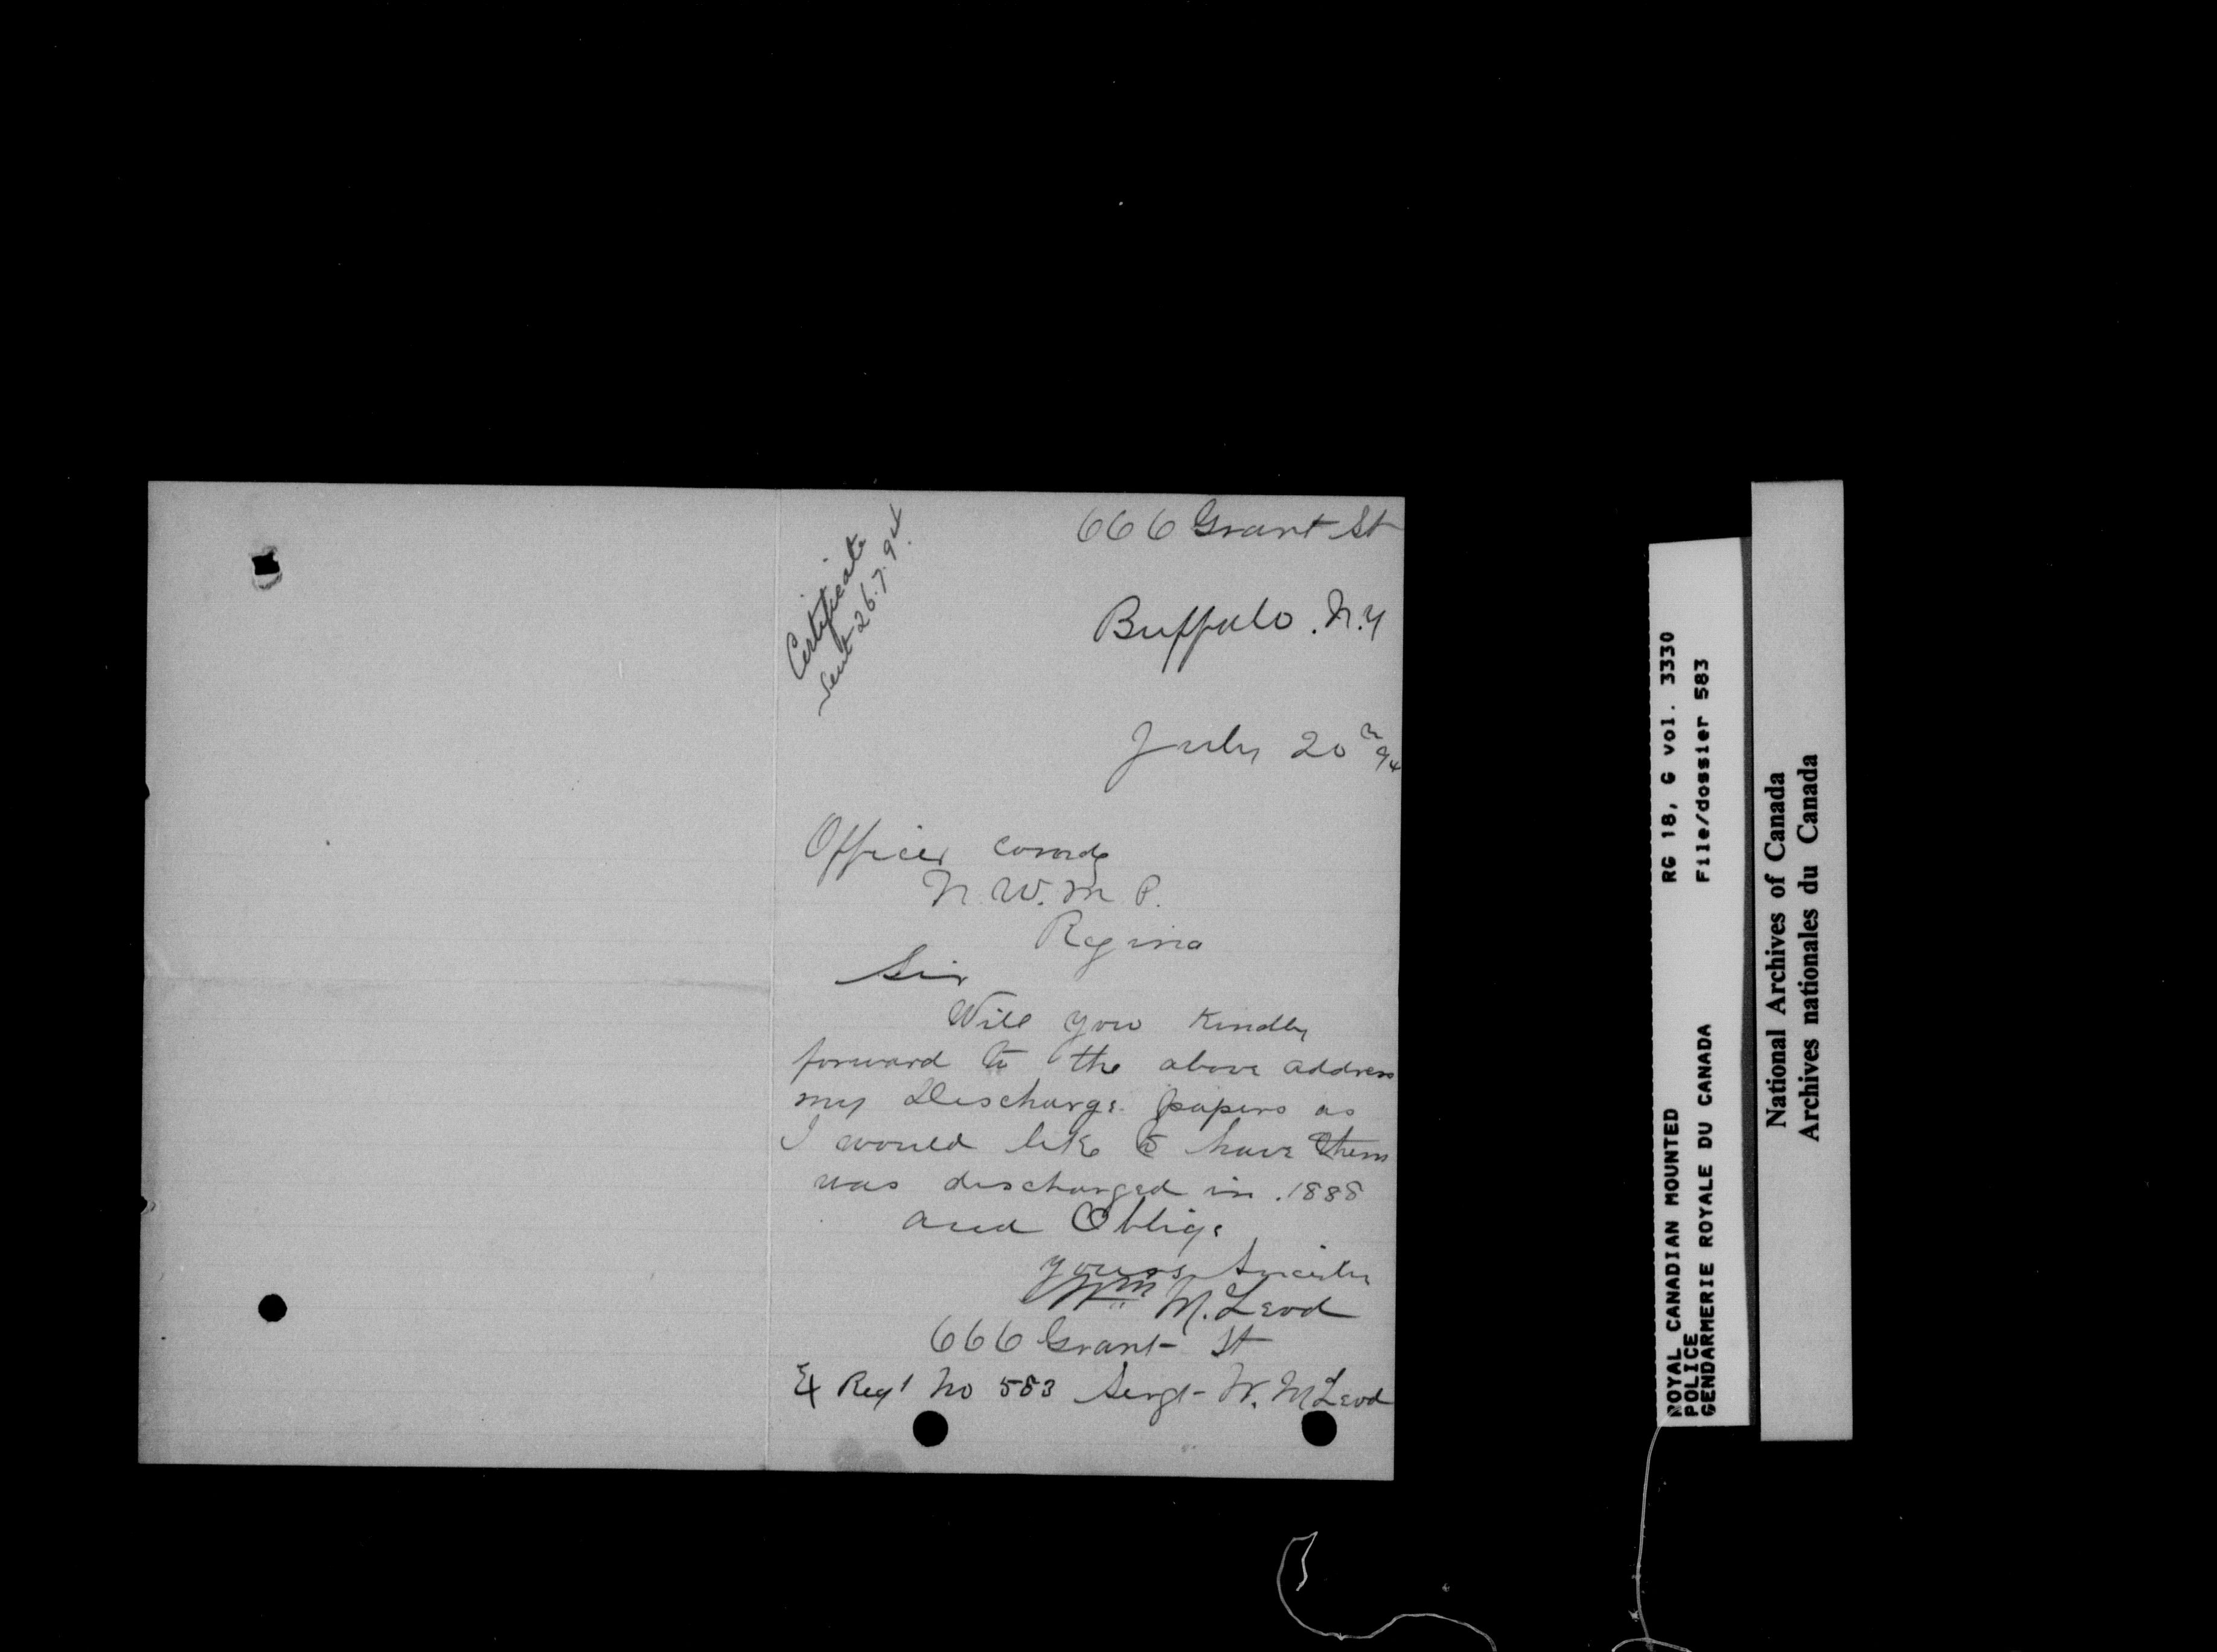 Certificate
sent 26.7.94.
666 Grant St
Buffalo. N.Y
July 20th 94
Officer Comdg
N. W. M. P.
Regina
Sir
Will you Kindly
forward to the above address
my Discharge papers as
I would like to have them
was discharged in .1888
and Oblige
yours Sincerly
Wm McLeod
666 Grant St
Ex Regt No 583 Sergt - W. McLeod
ROYAL CANADIAN MOUNTED RG 18, G vol. 3330
POLICE
GENDARMERIE ROYALE DU CANADA File/dossier 583
National Archives of Canada
Archives nationales du Canada